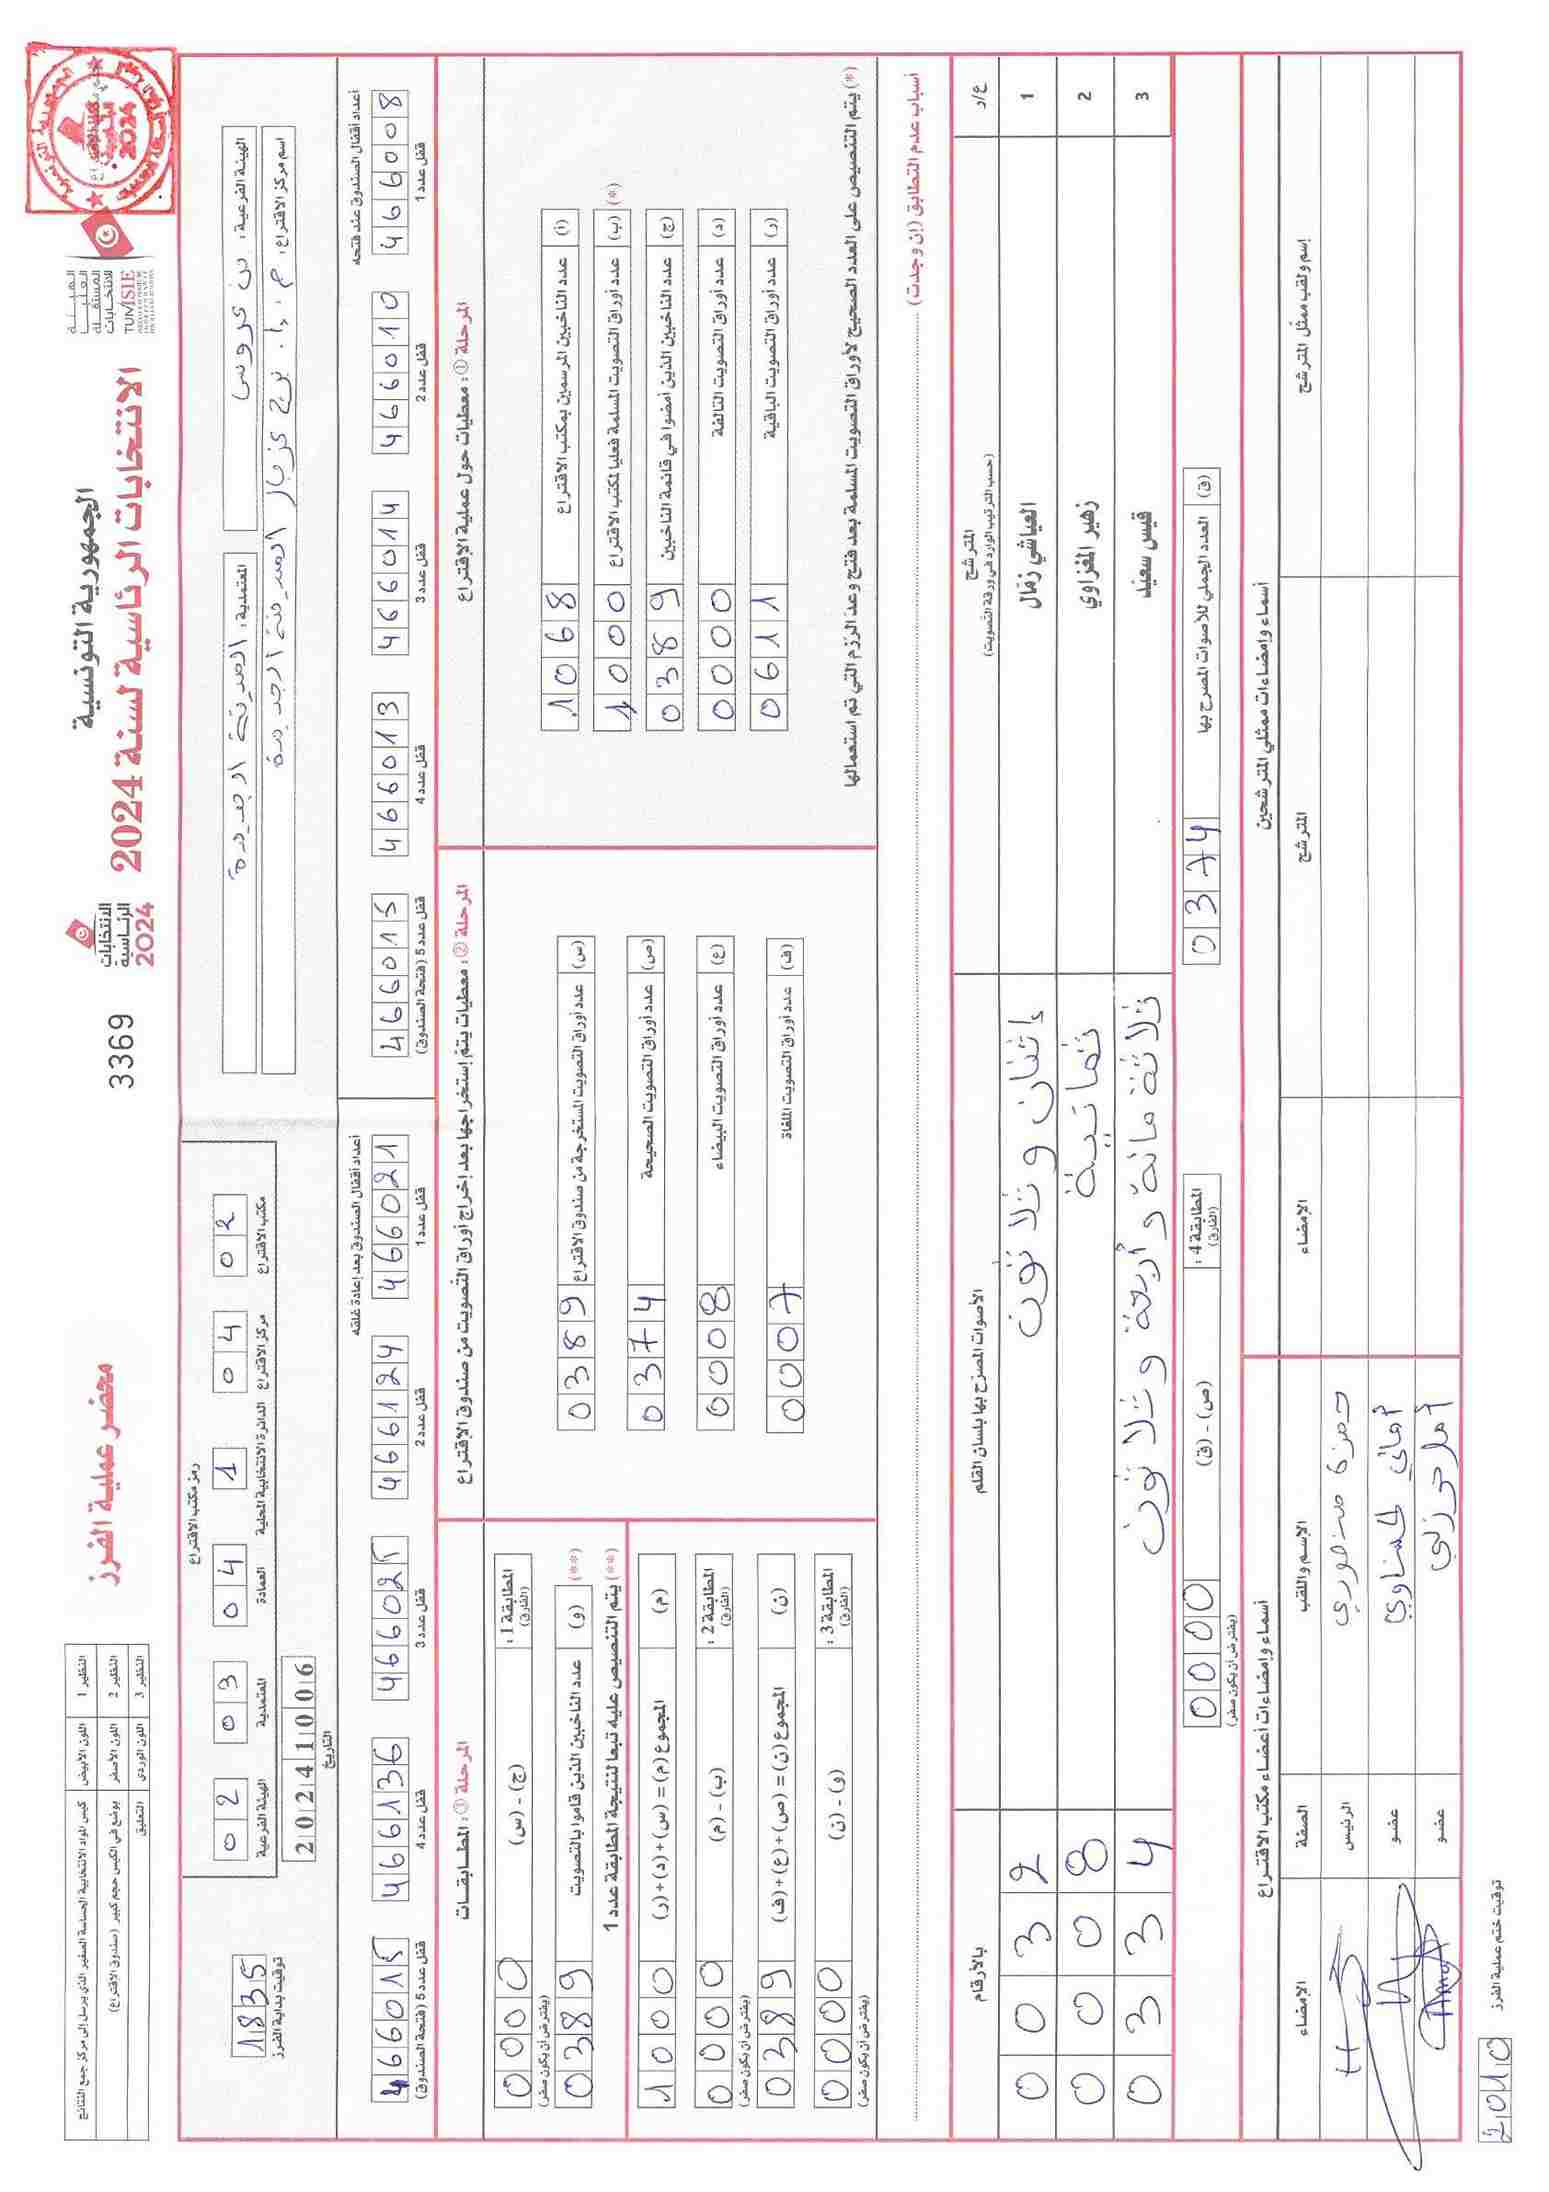 الجمهورية التونسية
الانتخابات الرئاسية لسنة 2024
الهيئة
العليا
المستقلة
للانتخابات
TUNISIE
الانتخابات
الرئاسية
2024
3369
محضر عملية الفرز
النظير 1 اللون الأبيض كيس المواد الانتخابية الحساسة الصغير الذي يرسل إلى مركز جمع النتائج
النظير 2 اللون الأصفر يوضع في الكيس حجم كبير (صندوق الاقتراع)
النظير 3 اللون الوردي التعليق
الهيئة الفرعية: بن عروس
المعتمدية: المدينة الجديدة
اسم مركز الاقتراع: م. إ. نهج غزالة المدينة الجديدة
رمز مكتب الاقتراع
02 03 04 1 04 02
الهيئة الفرعية المعتمدية العمادة الدائرة الانتخابية المحلية مركز الاقتراع مكتب الاقتراع
20241006
التاريخ
1835
توقيت بداية الفرز
أعداد أقفال الصندوق عند فتحه
4666008 قفل عدد 1
4666010 قفل عدد 2
4666014 قفل عدد 3
4666013 قفل عدد 4
4666015 قفل عدد 5 (فتحة الصندوق)
أعداد أقفال الصندوق بعد إعادة غلقه
4666021 قفل عدد 1
4666124 قفل عدد 2
4666025 قفل عدد 3
4666136 قفل عدد 4
4666015 قفل عدد 5 (فتحة الصندوق)
المرحلة ①: معطيات حول عملية الاقتراع
(أ) عدد الناخبين المرسمين بمكتب الاقتراع 1068
(ب) عدد أوراق التصويت المسلمة فعليا لمكتب الاقتراع 1000 (*)
(ج) عدد الناخبين الذين أمضوا في قائمة الناخبين 0389
(د) عدد أوراق التصويت التالفة 0000
(ر) عدد أوراق التصويت الباقية 0611
(*) يتم التنصيص على العدد الصحيح لأوراق التصويت المسلمة بعد فتح وعد الرزم التي تم استعمالها
المرحلة ②: معطيات يتم إستخراجها بعد إخراج أوراق التصويت من صندوق الاقتراع
(س) عدد أوراق التصويت المستخرجة من صندوق الاقتراع 0389
(ص) عدد أوراق التصويت الصحيحة 0374
(ع) عدد أوراق التصويت البيضاء 0008
(ف) عدد أوراق التصويت الملغاة 0007
المرحلة ③: المطابقات
المطابقة 1: (الفارق) (ج) - (س) 0000
(يفترض أن يكون صفر)
(و) عدد الناخبين الذين قاموا بالتصويت 0389 (**)
(**) يتم التنصيص عليه تبعا لنتيجة المطابقة عدد 1
(م) المجموع (م) = (س)+(د)+(ر) 1000
المطابقة 2: (الفارق) (ب) - (م) 0000
(يفترض أن يكون صفر)
(ن) المجموع (ن) = (ص)+(ع)+(ف) 0389
المطابقة 3: (الفارق) (و) - (ن) 0000
(يفترض أن يكون صفر)
أسباب عدم التطابق (إن وجدت)
ع/د المترشح (حسب الترتيب الوارد في ورقة التصويت) الأصوات المصرح بها بلسان القلم بالأرقام
1 العياشي زمال إثنان و ثلاثون 0032
2 زهير المغزاوي ثمانية 0008
3 قيس سعيد ثلاثة مائة و أربعة و ثلاثون 0334
(ق) العدد الجملي للأصوات المصرح بها 0374
المطابقة 4: (الفارق) (ص) - (ق) 0000
(يفترض أن يكون صفر)
أسماء وإمضاءات ممثلي المترشحين
إسم ولقب ممثل المترشح المترشح الإمضاء
أسماء وإمضاءات أعضاء مكتب الاقتراع
الإسم واللقب الصفة الإمضاء
حمزة منصوري الرئيس
أماني لحناوي عضو
عضو
توقيت ختم عملية الفرز
2010